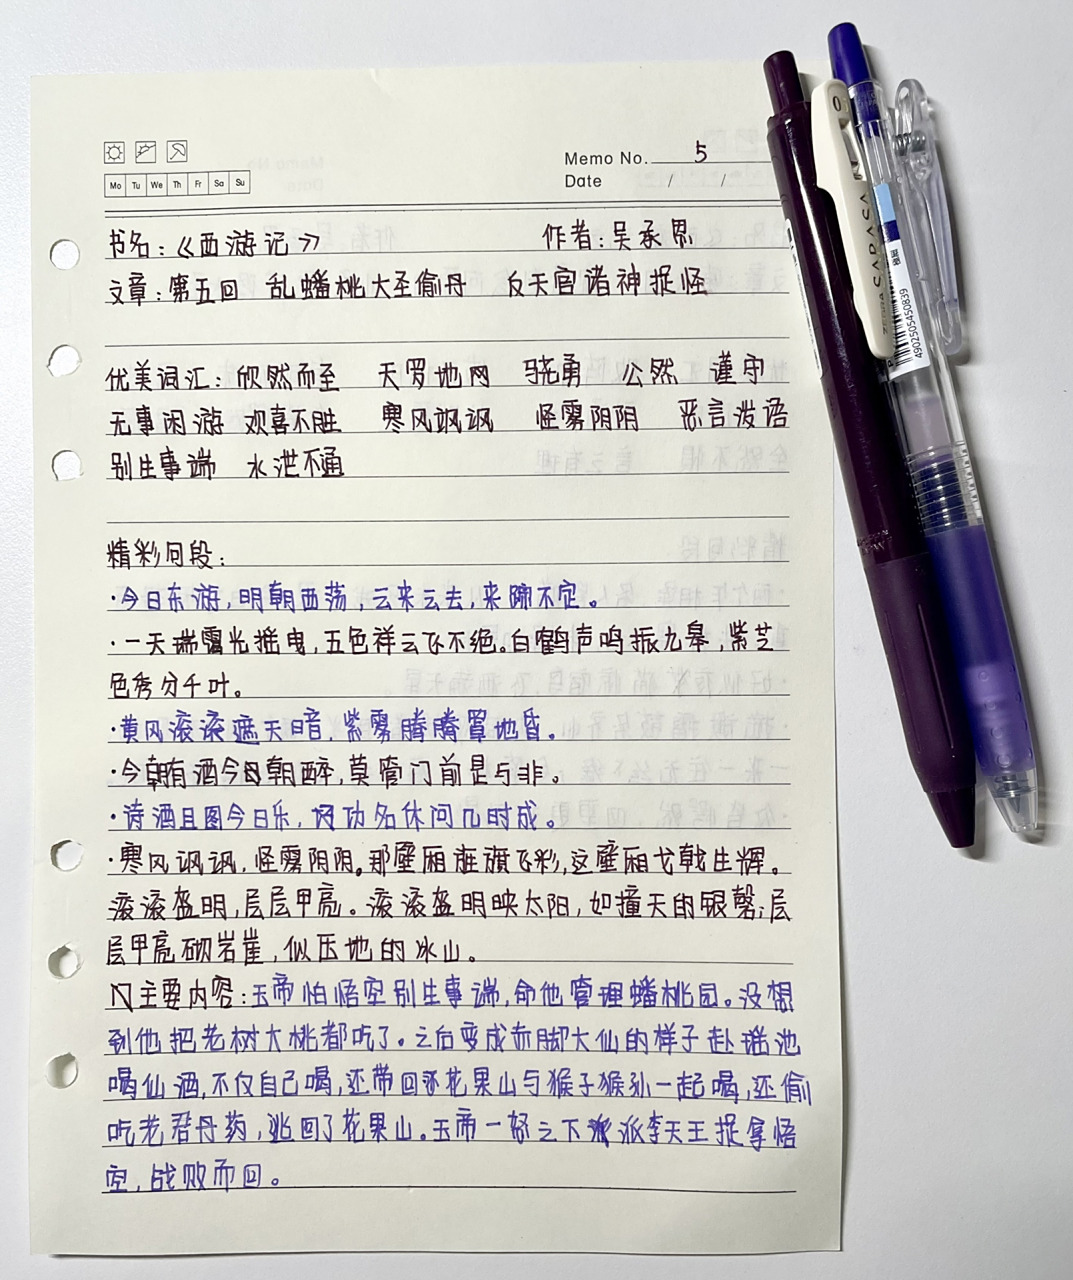 Memo No. 5
Mo Tu We Th Fr Sa Su
Date / /
书名：《西游记》 作者：吴承恩
文章：第五回 乱蟠桃大圣偷丹 反天宫诸神捉怪
优美词汇：欣然而至 天罗地网 骁勇 公然 谨守
无事闲游 欢喜不胜 寒风飒飒 怪雾阴阴 恶言泼语
别生事端 水泄不通
精彩句段：
·今日东游，明朝西荡，云来云去，来踪不定。
·一天瑞霭光摇曳，五色祥云飞不绝。白鹤声鸣振九皋，紫芝
色秀分千叶。
·黄风滚滚遮天暗，紫雾腾腾罩地昏。
·今朝有酒今朝醉，莫管门前是与非。
·诗酒且图今日乐，功名休问几时成。
·寒风飒飒，怪雾阴阴。那壁厢旌旗飞彩，这壁厢戈戟生辉。
滚滚盔明，层层甲亮。滚滚盔明映太阳，如撞天的银磬；层
层甲亮砌岩崖，似压地的冰山。
主要内容：玉帝怕悟空别生事端，命他管理蟠桃园。没想
到他把老树大桃都吃了。之后变成赤脚大仙的样子赴瑶池
喝仙酒，不仅自己喝，还带回花果山与猴子猴孙一起喝，还偷
吃老君丹药，逃回了花果山。玉帝一怒之下派李天王捉拿悟
空，战败而回。
ZEBRA SARASA
4902505450839